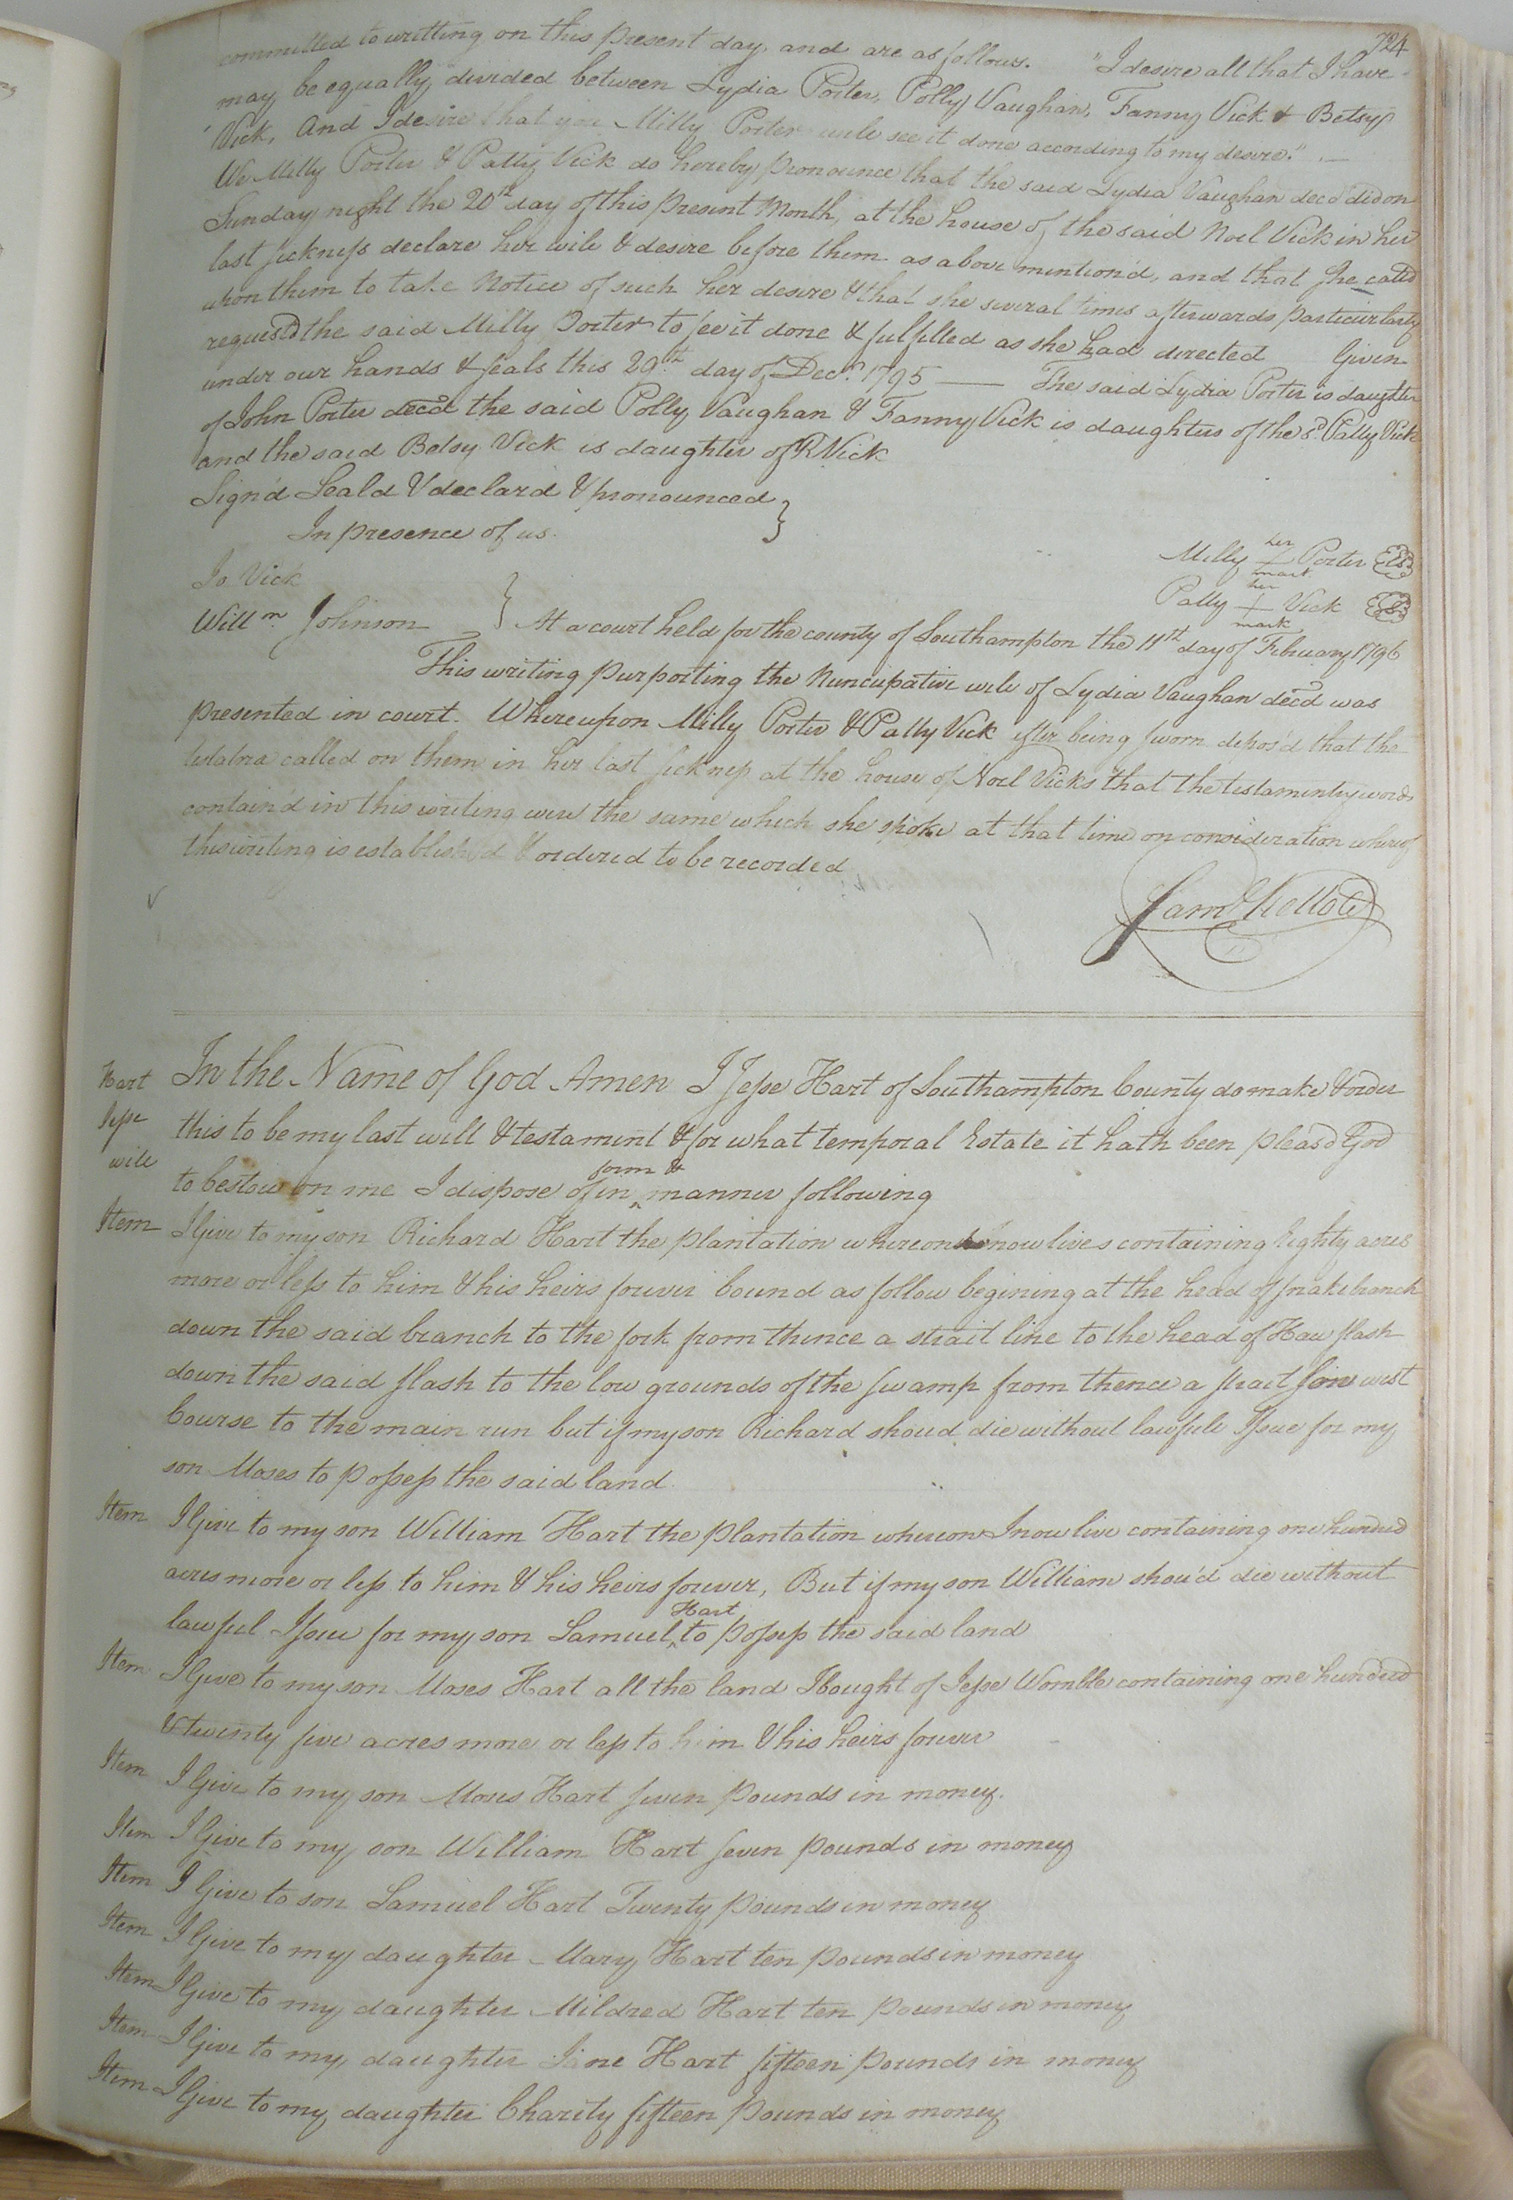 724
committed to writting on this present day, and are as follows. "I desire all that I have
may be equally divided between Lydia Porter, Polly Vaughan, Fanny Vick & Betsy
Vick, And I desire that you Milly Porter will see it done according to my desire."
We Milly Porter & Patty Vick do hereby pronounce that the said Lydia Vaughan decd did on
Sunday night the 20th day of this present Month, at the house of the said Noel Vick in her
last sickness declare her will & desire before them as above mention'd, and that she call'd
upon them to take Notice of such her desire & that she several times afterwards particurlarly
requestd the said Milly Porter to see it done & fulfilled as she had directed Given
under our hands & seals this 29th day of Decr. 1795 — The said Lydia Porter is daughter
of John Porter decd the said Polly Vaughan & Fanny Vick is daughters of the sd Patty Vick
and the said Betsy Vick is daughter of R Vick
Sign'd Seald & declar'd & pronounced }
In presence of us.
Jo Vick
Willm Johnson }
Milly her + mark Porter LS
Patty her + mark Vick LS
At a court held for the county of Southampton the 11th day of February 1796
This writing purporting the Nuncupative will of Lydia Vaughan decd was
presented in court. Whereupon Milly Porter & Patty Vick after being sworn depos'd that the
testatrix called on them in her last sickness at the house of Noel Vicks that the testamentry words
containd in this writing were the same which she spoke at that time on consideration whereof
this writing is established & ordered to be recorded
Saml Kello CC
Hart
Jesse
will
In the Name of God Amen I Jesse Hart of Southampton County do make & order
this to be my last will & testament & for what temporal Estate it hath been pleasd God
to bestow on me I dispose of in form & manner following
Item I Give to my son Richard Hart the plantation whereon he now lives containing Eighty acres
more or less to him & his heirs forever bound as follow begining at the head of snake branch
down the said branch to the fork from thence a strait line to the head of Haw slash
down the said slash to the low grounds of the swamp from thence a strait line west
Course to the main run but if my son Richard shoud die without lawfull Issue for my
son Moses to possess the said land.
Item I Give to my son William Hart the plantation whereon I now live containing one hundred
acres more or less to him & his heirs forever, But if my son William shou'd die without
lawful Issue for my son Samuel Hart to possess the said land
Item I Give to my son Moses Hart all the land I bought of Jesse Womble containing one hundred
& twenty five acres more or less to him & his heirs forever
Item I Give to my son Moses Hart seven pounds in money.
Item I Give to my son William Hart seven pounds in money
Item I Give to son Samuel Hart Twenty pounds in money
Item I Give to my daughter Mary Hart ten pounds in money
Item I Give to my daughter Mildred Hart ten pounds in money
Item I Give to my daughter Jane Hart fifteen pounds in money
Item I Give to my daughter Charity fifteen pounds in money